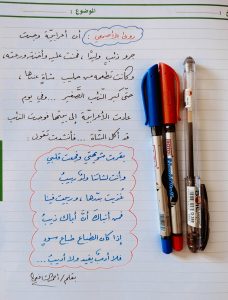 الموضوع:
روى الأصمعي: أن أعرابية وجدت
جرو ذئب وليدًا، فحنت عليه وأخذته ورعته،
وكانت تطعمه من حليب شاة عندها،
حتى كبر الذئب الصغير... وفي يوم
عادت الأعرابية إلى بيتها فوجدت الذئب
قد أكل الشاة... فأنشدت تقول:
بقرت شويهتي وفجعت قلبي
وأنت لشاتنا ولد ربيب
غذيت بدرها، وربيت فينا
فمن أنباك أن أباك ذيب
إذا كان الطباع طباع سوء
فلا أدب يفيد ولا أديب...
بقلم/